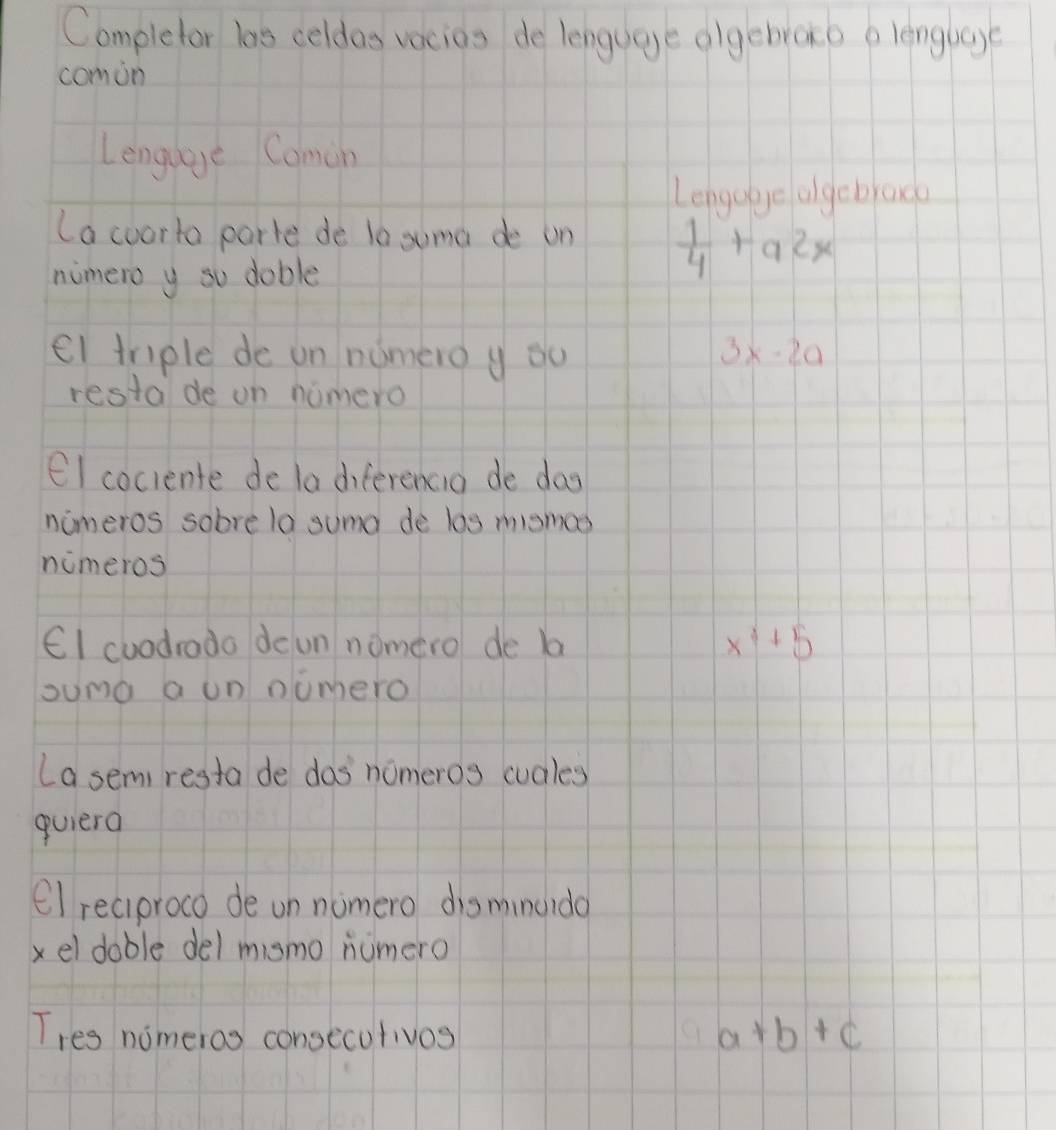 Completar las celdas vacias de lenguaje algebraico a lenguaje
común
Lenguaje Común
Lenguaje algebraico
La cuarta parte de la suma de un
número y su doble
1/4 + a2x
El triple de un número y su
resta de un número
3x-2a
El cociente de la diferencia de dos
números sobre la suma de los mismos
números
El cuadrado de un número de la
suma a un número
La semi resta de dos números cuales
quiera
El reciproco de un número disminuido
x el doble del mismo número
Tres números consecutivos
a+b+c